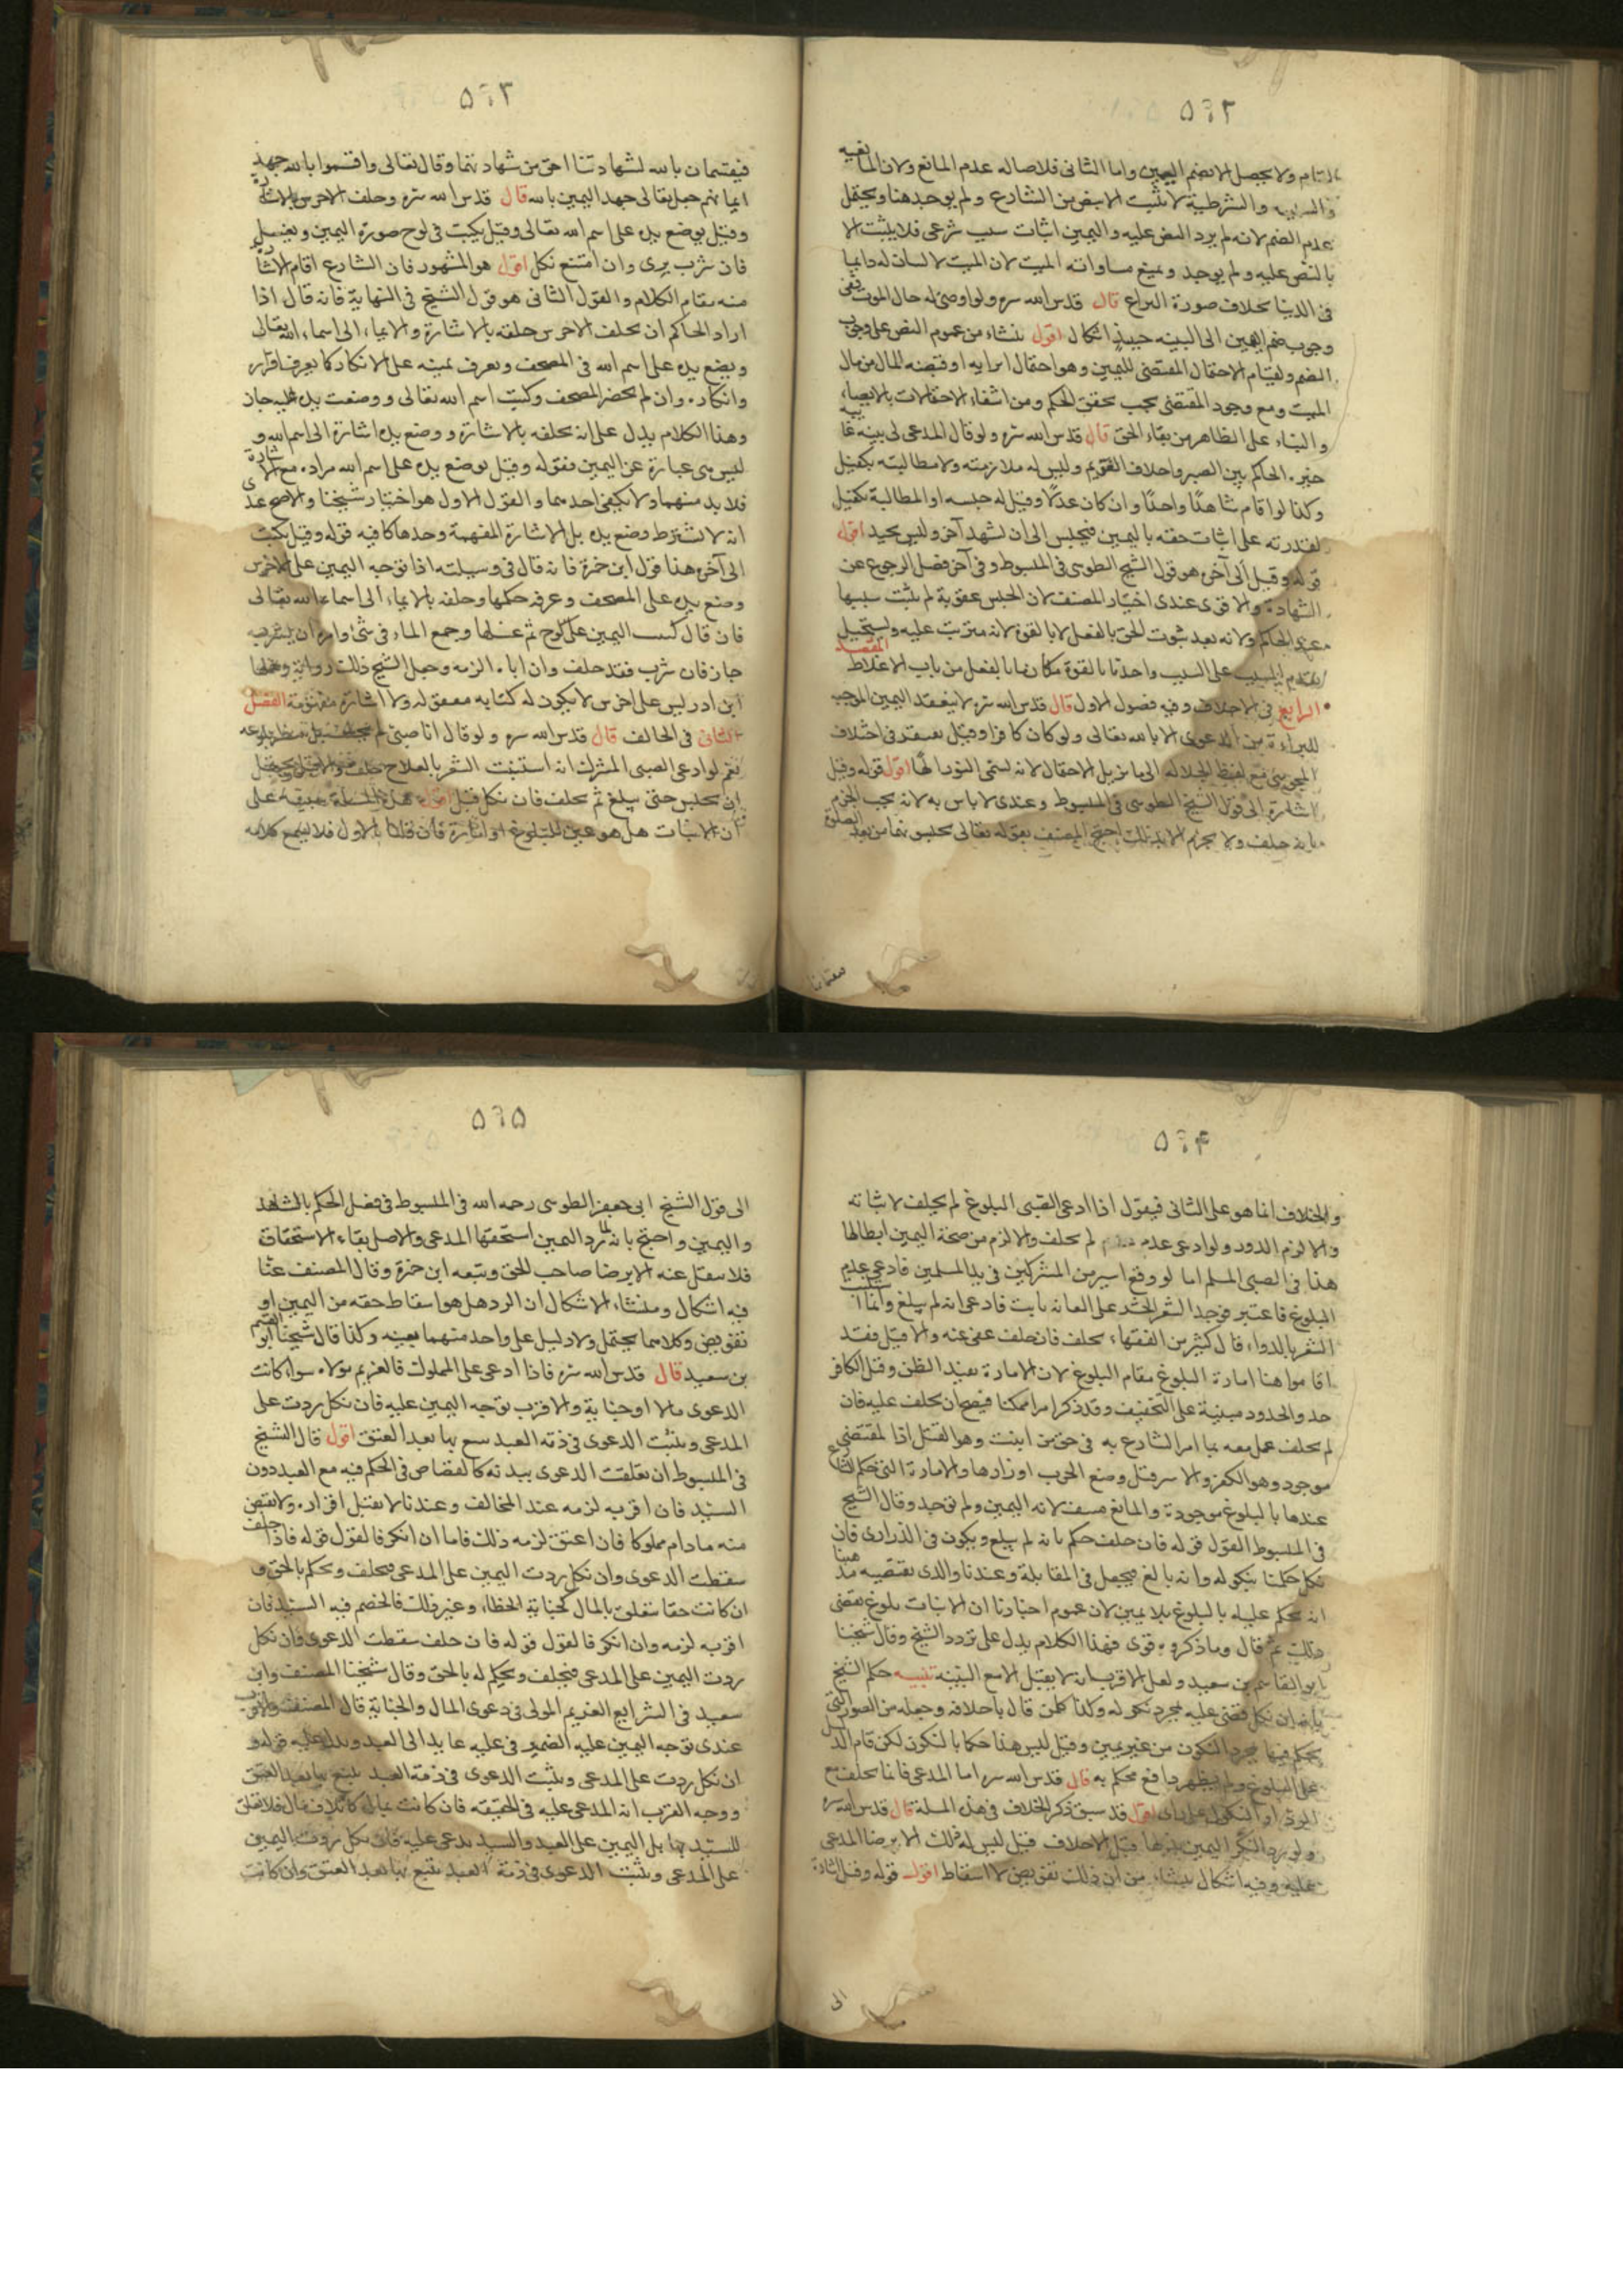 ٥٦٢
التام ولا يحصل الا بضم اليمين واما الثانى فلاصالة عدم المانع ولان المانعيه
والسببيه والشرطية لا تثبت الا بنص من الشارع ولم يوجد هنا ويحتمل
عدم الضم لانه لم يرد النص عليه واليمين اثبات سبب شرعى فلا يثبت الا
بالنص عليه ولم يوجد ويمنع مساواته الميت لان الميت لا لسان له دايما
فى الدنيا بخلاف صورة النزاع قال قدس الله سره ولو اوصى له حال الموت ففى
وجوب ضم اليمين الى البينه حينئذ اشكال اقول ينشاء من عموم النص على وجوب
الضم ولقيام الاحتمال المقتضى لليمين وهو احتمال ابرايه او قبضه المال من مال
الميت ومع وجود المقتضى يجب تحقق الحكم ومن انتفاء الاحتمالات بالايصاء
والبناء على الظاهر من بقاء الحق قال قدس الله سره ولو قال المدعى لى بينه غايبه
خيره الحاكم بين الصبر واحلاف الغريم وليس له ملازمته ولا مطالبته بكفيل
وكذا لو اقام شاهدًا واحدًا وان كان عدلًا وقيل له حبسه او المطالبة بكفيل
لقدرته على اثبات حقه باليمين فيحبس الى ان يشهد آخر وليس بجيد اقول
قوله وقيل الى آخره هو قول الشيخ الطوسى فى المبسوط وفى آخر فصل الرجوع عن
الشهادة والاقوى عندى اختيار المصنف لان الحبس عقوبة لم يثبت سببها
عند الحاكم ولانه بعد ثبوت الحق بالفعل لا بالقوة لانه مترتب عليه ويستحيل
تقدم المسبب على السبب واخذ ما بالقوة مكان ما بالفعل من باب الاغلاط المقصد
الرابع فى الاحلاف وفيه فصول الاول قال قدس الله سره لا ينعقد اليمين الموجب
للبراءة من الدعوى الا بالله تعالى ولو كان كافرا وقيل يفتقر فى احلاف
المجوسى مع لفظ الجلاله الى ما يزيل الاحتمال لانه يسمى النور الهًا اقول قوله وقيل
اشارة الى قول الشيخ الطوسى فى المبسوط وعندى لا باس به لانه يجب الجزم
بانه حلف ولا يجزم الا بذلك احتج المصنف بقوله تعالى تحبسونهما من بعد الصلوة
فيقسمان
٥٦٣
فيقسمان بالله لشهادتنا احق من شهادتهما وقال تعالى واقسموا بالله جهد
ايمانهم جعل تعالى جهد اليمين بالله قال قدس الله سره وحلف الاخرس بالاشارة
وقيل يوضع يده على اسم الله تعالى وقيل يكتب فى لوح صورة اليمين ويغسل
فان شرب برى وان امتنع نكل اقول هو المشهور فان الشارع اقام الاشارة
منه مقام الكلام والقول الثانى هو قول الشيخ فى النهاية فانه قال اذا
اراد الحاكم ان يحلف الاخرس حلفه بالاشارة والايماء الى اسماء الله تعالى
ويضع يده على اسم الله فى المصحف ويعرف يمينه على الانكار كما يعرف اقراره
وانكاره وان لم يحضر المصحف وكتب اسم الله تعالى ووضعت يده عليه جاز
وهذا الكلام يدل على انه يحلفه بالاشارة ووضع يده اشارة الى اسم الله و
ليس هى عبارة عن اليمين فقوله وقيل يوضع يده على اسم الله مراده مع الاشارة
فلا بد منهما ولا يكفى احدهما والقول الاول هو اختيار شيخنا والاصح عندى
انه لا يشترط وضع يده بل الاشارة المفهمة وحدها كافيه قوله وقيل يكتب
الى آخره هذا قول ابن حمزة فانه قال فى وسيلته اذا توجه اليمين على الاخرس
وضع يده على المصحف وعرفه حكمها وحلفه بالايماء الى اسماء الله تعالى
فان قال كتب اليمين على لوح ثم غسلها وجمع الماء فى شئ وامره ان يشربه
جاز فان شرب فقد حلف وان ابا الزمه وجعل الشيخ ذلك رواية وحملها
ابن ادريس على اخرس لا يكون له كتابه معقوله ولا اشارة مفهومة الفصل
الثانى فى الحالف قال قدس الله سره ولو قال انا صبى لم يحلف بل ينتظر بلوغه
نعم لو ادعى الصبى المشرك انه استنبت الشعر بالعلاج حلف والا قتل ويحتمل
ان يحبس حتى يبلغ ثم يحلف فان نكل قتل اقول هذه المسئلة مبنية على
ان الانبات هل هو عين البلوغ او امارة فان قلنا بالاول فلا يسمع كلامه
٥٦٤
والخلاف انما هو على الثانى فيقول اذا ادعى الصبى البلوغ لم يحلف لاثباته
والا لزم الدور ولو ادعى عدم لم يحلف والا لزم من صحة اليمين ابطالها
هذا فى الصبى المسلم اما لو وقع اسير من المشركين فى يد المسلمين فادعى عدم
البلوغ فاعتبر فوجد الشعر الخشن على العانه نابت فادعى انه لم يبلغ وانما انبت
الشعر بالدواء قال كثير من الفقهاء يحلف فان حلف عفى عنه والا قتل فقد
اقاموا هنا امارة البلوغ مقام البلوغ لان الامارة تفيد الظن وقتل الكافر
حد والحدود مبنية على التخفيف وقد ذكر امرا ممكنا فيصح ان يحلف عليه فان
لم يحلف عمل معه بما امر الشارع به فى حق من انبت وهو القتل اذ المقتضى
موجود وهو الكفر والاسر قبل وضع الحرب اوزارها والامارة التى حكم الشارع
عندها بالبلوغ موجودة والمانع منتف لانه اليمين ولم توجد وقال الشيخ
فى المبسوط القول قوله فان حلف حكم بانه لم يبلغ ويكون فى الذرارى فان
نكل حكمنا بنكوله وانه بالغ فيجعل فى المقاتلة وعندنا والذى يقتضيه مذهبنا
انه يحكم عليه بالبلوغ بلا يمين لان عموم اخبارنا ان الانبات بلوغ يقتضى
ذلك ثم قال وما ذكروه قوى فهذا الكلام يدل على تردد الشيخ وقال شيخنا
ابو القاسم بن سعيد ولعل الاقرب انه لا يقبل الا مع البينه تنبيه حكم الشيخ
بانه ان نكل قضى عليه بمجرد نكوله وكذا كل من قال باحلافه وجعله من الصور التى
يحكم فيها بمجرد النكول من غير يمين وقيل ليس هذا حكما بالنكول لكن قام الدليل
على البلوغ ولم يظهر دافع فحكم به قال قدس الله سره اما المدعى فانما يحلف مع
الرد او النكول على راى اقول قد سبق ذكر الخلاف فى هذه المسئلة قال قدس الله سره
ولو رد المنكر اليمين ثم بذلها قبل الاحلاف قيل ليس له ذلك الا برضا المدعى
عليه وفيه اشكال ينشاء من ان ذلك تفويض لا اسقاط اقول قوله وقيل اشارة
الى
٥٦٥
الى قول الشيخ ابى جعفر الطوسى رحمه الله فى المبسوط فى فصل الحكم بالشاهد
واليمين واحتج بانه لما رد اليمين استحقها المدعى والاصل بقاء الاستحقاق
فلا ينتقل عنه الا برضا صاحب الحق وتبعه ابن حمزة وقال المصنف عندنا
فيه اشكال ومنشاء الاشكال ان الرد هل هو اسقاط حقه من اليمين او
تفويض وكلاهما يحتمل ولا دليل على واحد منهما بعينه وكذا قال شيخنا ابو القسم
بن سعيد قال قدس الله سره فاذا ادعى على المملوك فالغريم مولاه سواء كانت
الدعوى مالا او جناية والاقرب توجه اليمين عليه فان نكل ردت على
المدعى ويثبت الدعوى فى ذمة العبد يتبع بها بعد العتق اقول قال الشيخ
فى المبسوط ان تعلقت الدعوى ببدنه كالقصاص فى الحكم فيه مع العبد دون
السيد فان اقر به لزمه عند المخالف وعندنا لا يقبل اقراره ولا يقتص
منه مادام مملوكا فان اعتق لزمه ذلك فاما ان انكر فالقول قوله فاذا حلف
سقطت الدعوى وان نكل ردت اليمين على المدعى فيحلف ويحكم بالحق و
ان كانت حقا يتعلق بالمال كجناية الخطاء وغير ذلك فالخصم فيه السيد فان
اقر به لزمه وان انكر فالقول قوله فان حلف سقطت الدعوى وان نكل
ردت اليمين على المدعى فيحلف ويحكم له بالحق وقال شيخنا المصنف وابن
سعيد فى الشرايع الغريم المولى فى دعوى المال والجناية قال المصنف والاقرب
عندى توجه اليمين عليه الضمير فى عليه عايد الى العبد ويدل عليه قوله و
ان نكل ردت على المدعى ويثبت الدعوى فى ذمة العبد يتبع بها بعد العتق
ووجه القرب انه المدعى عليه فى الحقيقه فان كانت بمال كاتلاف مال فلا تعلق
للسيد بها بل اليمين على العبد والسيد يدعى عليه فان نكل ردت اليمين
على المدعى ويثبت الدعوى فى ذمة العبد يتبع بها بعد العتق وان كانت